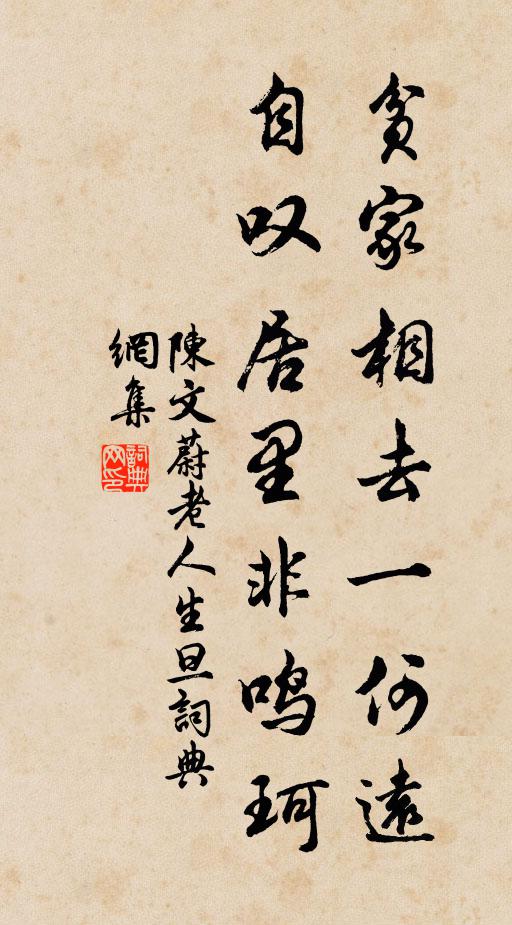 貧家相去一何遠
自叹居里非鸣珂
陳文蔚老人生旦詞典
網集
詞典网印